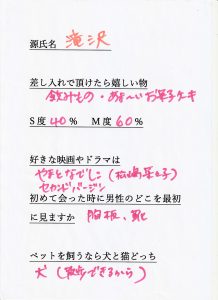 源氏名 滝沢
差し入れで頂けたら嬉しい物
飲みもの・あまーいお菓子ケーキ
S度40% M度60%
好きな映画やドラマは
やまとなでしこ(松嶋菜々子)
セカンドバージン
初めて会った時に男性のどこを最初
に見ますか 胸板、靴
ペットを飼うなら犬と猫どっち
犬(散歩できるから)